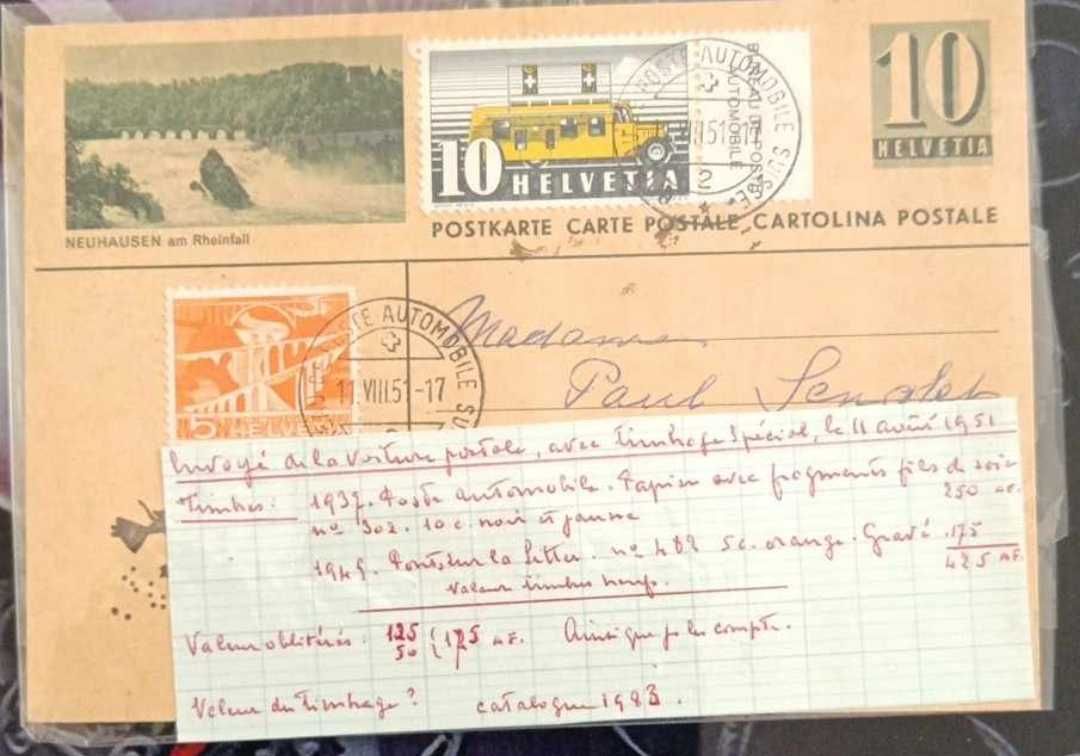 10
HELVETIA
NEUHAUSEN am Rheinfall
10 HELVETIA
BUREAU DE POSTE
AUTOMOBILE
POSTE AUTOMOBILE SUISSE
VIII.51-17
2
POSTKARTE CARTE POSTALE CARTOLINA POSTALE
5 HELVETIA
POSTE AUTOMOBILE SU
11.VIII.51-17
Madame
Paul
Envoyé de la Voiture postale, avec timbrage Spécial, le 11 août 1951
Timbres : 1937. Poste automobile. Papier avec fragments fils de soie
nº 302. 10 c. noir et jaune 250 NF.
1949. Ponts sur la Sitter. nº 482 5 c. orange. Gravé 175
Valeur timbres neufs. 425 NF
Valeur oblitérés. 125
50 { 175 NF. Ainsi que je les compte.
Valeur du timbrage ? catalogue 1983.